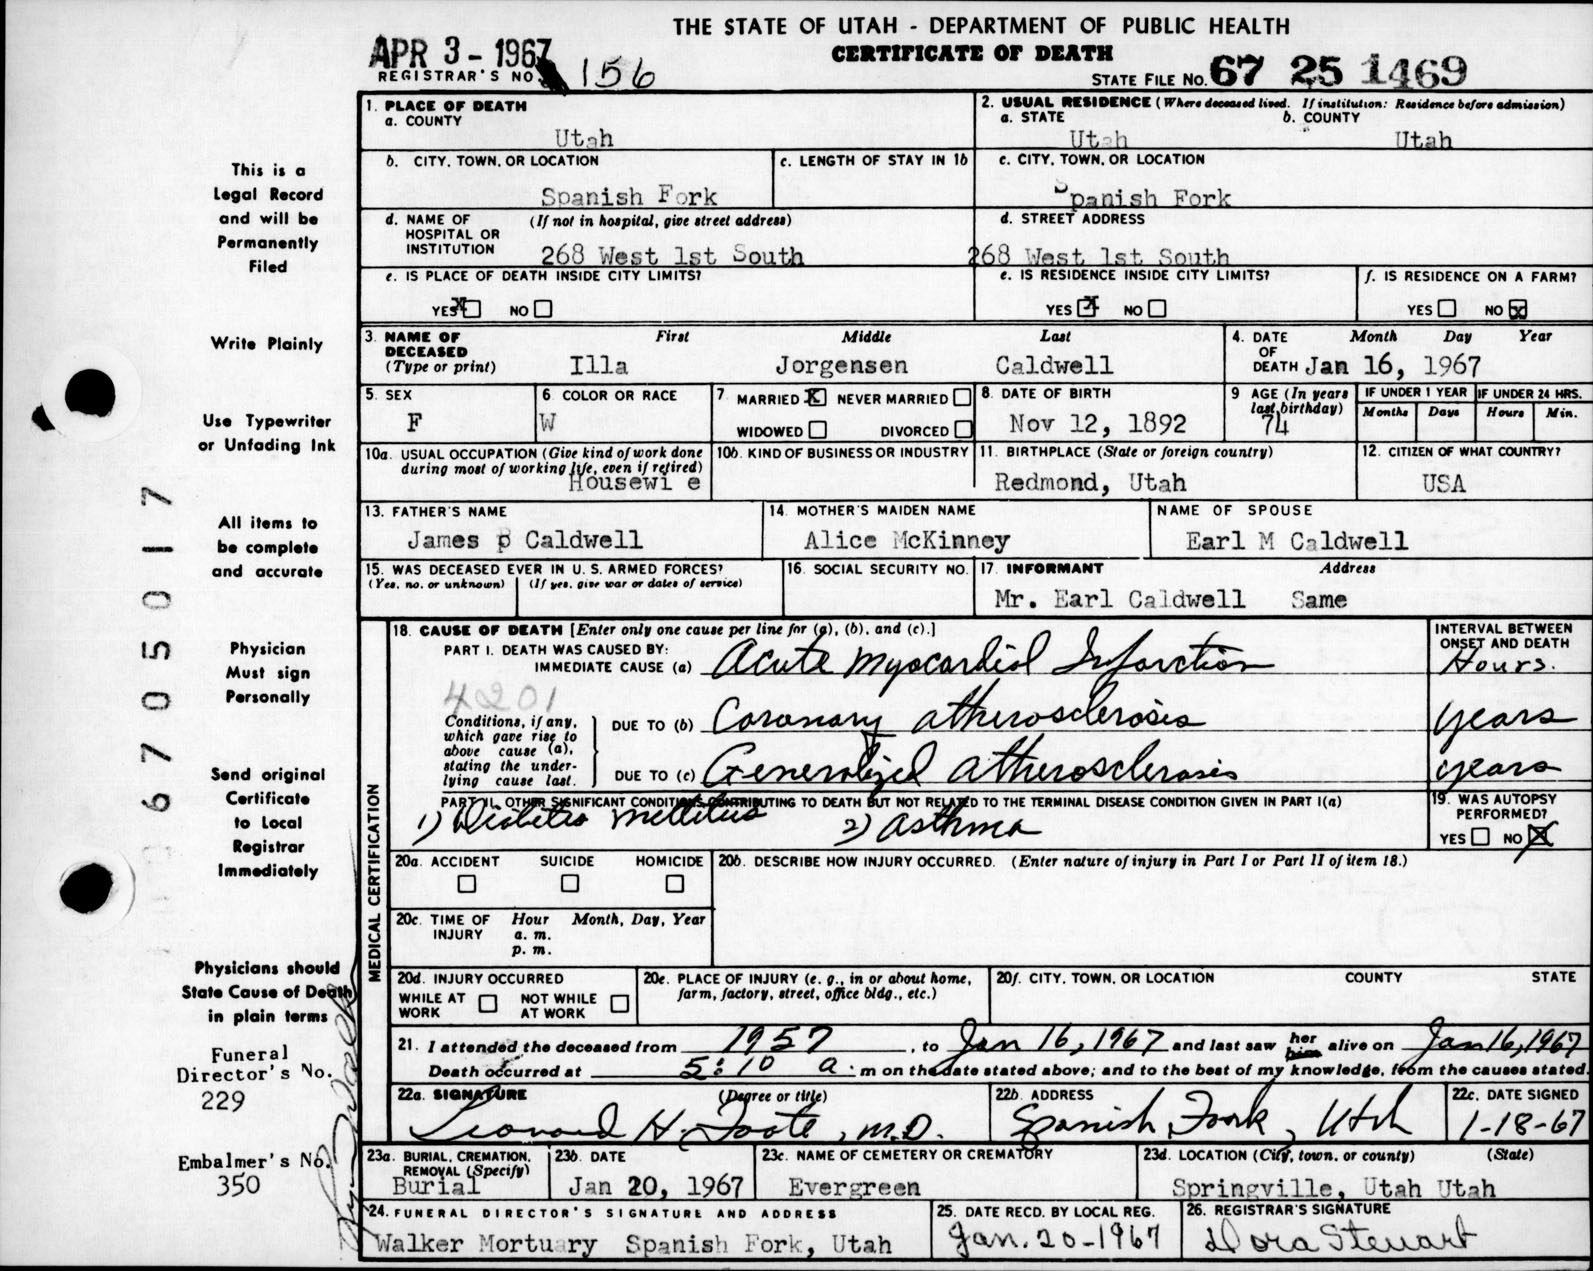 THE STATE OF UTAH - DEPARTMENT OF PUBLIC HEALTH
CERTIFICATE OF DEATH
APR 3 - 1967
REGISTRAR'S NO. 156
STATE FILE NO. 67 25 1469
This is a
Legal Record
and will be
Permanently
Filed
Write Plainly
Use Typewriter
or Unfading Ink
All items to
be complete
and accurate
Physician
Must sign
Personally
Send original
Certificate
to Local
Registrar
Immediately
Physicians should
State Cause of Death
in plain terms
Funeral
Director's No.
229
Embalmer's No.
350
67 05017
1. PLACE OF DEATH
a. COUNTY
Utah
2. USUAL RESIDENCE (Where deceased lived. If institution: Residence before admission)
a. STATE b. COUNTY
Utah Utah
b. CITY, TOWN, OR LOCATION
Spanish Fork
c. LENGTH OF STAY IN 1b
c. CITY, TOWN, OR LOCATION
Spanish Fork
d. NAME OF HOSPITAL OR INSTITUTION (If not in hospital, give street address)
268 West 1st South
d. STREET ADDRESS
268 West 1st South
e. IS PLACE OF DEATH INSIDE CITY LIMITS?
YES X NO
e. IS RESIDENCE INSIDE CITY LIMITS?
YES X NO
f. IS RESIDENCE ON A FARM?
YES NO X
3. NAME OF DECEASED (Type or print)
First Middle Last
Illa Jorgensen Caldwell
4. DATE OF DEATH Month Day Year
Jan 16, 1967
5. SEX
F
6. COLOR OR RACE
W
7. MARRIED X NEVER MARRIED
WIDOWED DIVORCED
8. DATE OF BIRTH
Nov 12, 1892
9 AGE (In years last birthday)
74
IF UNDER 1 YEAR IF UNDER 24 HRS.
Months Days Hours Min.
10a. USUAL OCCUPATION (Give kind of work done
during most of working life, even if retired)
Housewi e
10b. KIND OF BUSINESS OR INDUSTRY
11. BIRTHPLACE (State or foreign country)
Redmond, Utah
12. CITIZEN OF WHAT COUNTRY?
USA
13. FATHER'S NAME
James p Caldwell
14. MOTHER'S MAIDEN NAME
Alice McKinney
NAME OF SPOUSE
Earl M Caldwell
15. WAS DECEASED EVER IN U.S. ARMED FORCES?
(Yes, no, or unknown) (If yes, give war or dates of service)
16. SOCIAL SECURITY NO.
17. INFORMANT Address
Mr. Earl Caldwell Same
MEDICAL CERTIFICATION
18. CAUSE OF DEATH [Enter only one cause per line for (a), (b), and (c).]
INTERVAL BETWEEN ONSET AND DEATH
PART I. DEATH WAS CAUSED BY:
IMMEDIATE CAUSE (a) Acute Myocardial Infarction Hours.
4201
Conditions, if any,
which gave rise to
above cause (a),
stating the under-
lying cause last.
DUE TO (b) Coronary atherosclerosis years
DUE TO (c) Generalized atherosclerosis years
PART II. OTHER SIGNIFICANT CONDITIONS CONTRIBUTING TO DEATH BUT NOT RELATED TO THE TERMINAL DISEASE CONDITION GIVEN IN PART I(a)
1) Diabetes Mellitus 2) Asthma
19. WAS AUTOPSY PERFORMED?
YES NO X
20a. ACCIDENT SUICIDE HOMICIDE
20b. DESCRIBE HOW INJURY OCCURRED. (Enter nature of injury in Part I or Part II of item 18.)
20c. TIME OF INJURY Hour Month, Day, Year
a. m.
p. m.
20d. INJURY OCCURRED
WHILE AT WORK NOT WHILE AT WORK
20e. PLACE OF INJURY (e. g., in or about home,
farm, factory, street, office bldg., etc.)
20f. CITY, TOWN, OR LOCATION COUNTY STATE
21. I attended the deceased from 1957, to Jan 16, 1967 and last saw her him alive on Jan 16, 1967
Death occurred at 5:10 a. m on the date stated above; and to the best of my knowledge, from the causes stated.
22a. SIGNATURE (Degree or title)
Leonard H. Foote, M.D.
22b. ADDRESS
Spanish Fork, Utah
22c. DATE SIGNED
1-18-67
23a. BURIAL, CREMATION, REMOVAL (Specify)
Burial
23b. DATE
Jan 20, 1967
23c. NAME OF CEMETERY OR CREMATORY
Evergreen
23d. LOCATION (City, town, or county) (State)
Springville, Utah Utah
24. FUNERAL DIRECTOR'S SIGNATURE AND ADDRESS
Walker Mortuary Spanish Fork, Utah
25. DATE RECD. BY LOCAL REG.
Jan. 20-1967
26. REGISTRAR'S SIGNATURE
Dora Stewart